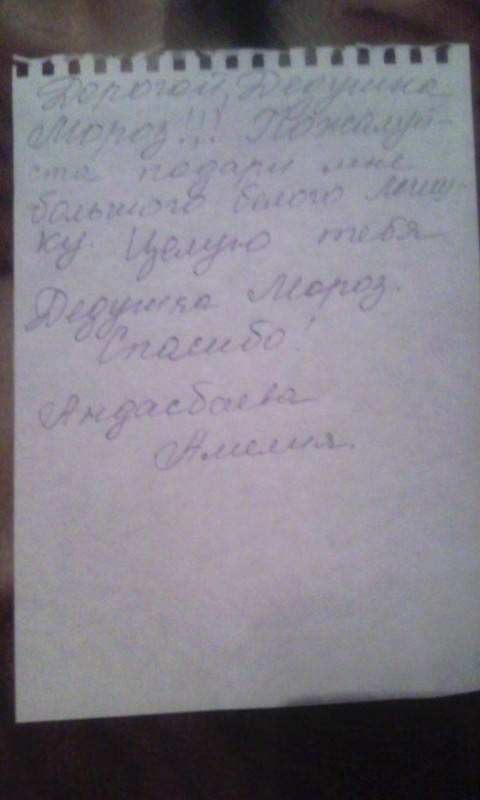 Дорогой, Дедушка
Мороз!!! Пожалуй-
ста подари мне
большого белого мишу-
ку. Целую тебя
Дедушка Мороз.
Спасибо!
Андасбаева
Амелия.